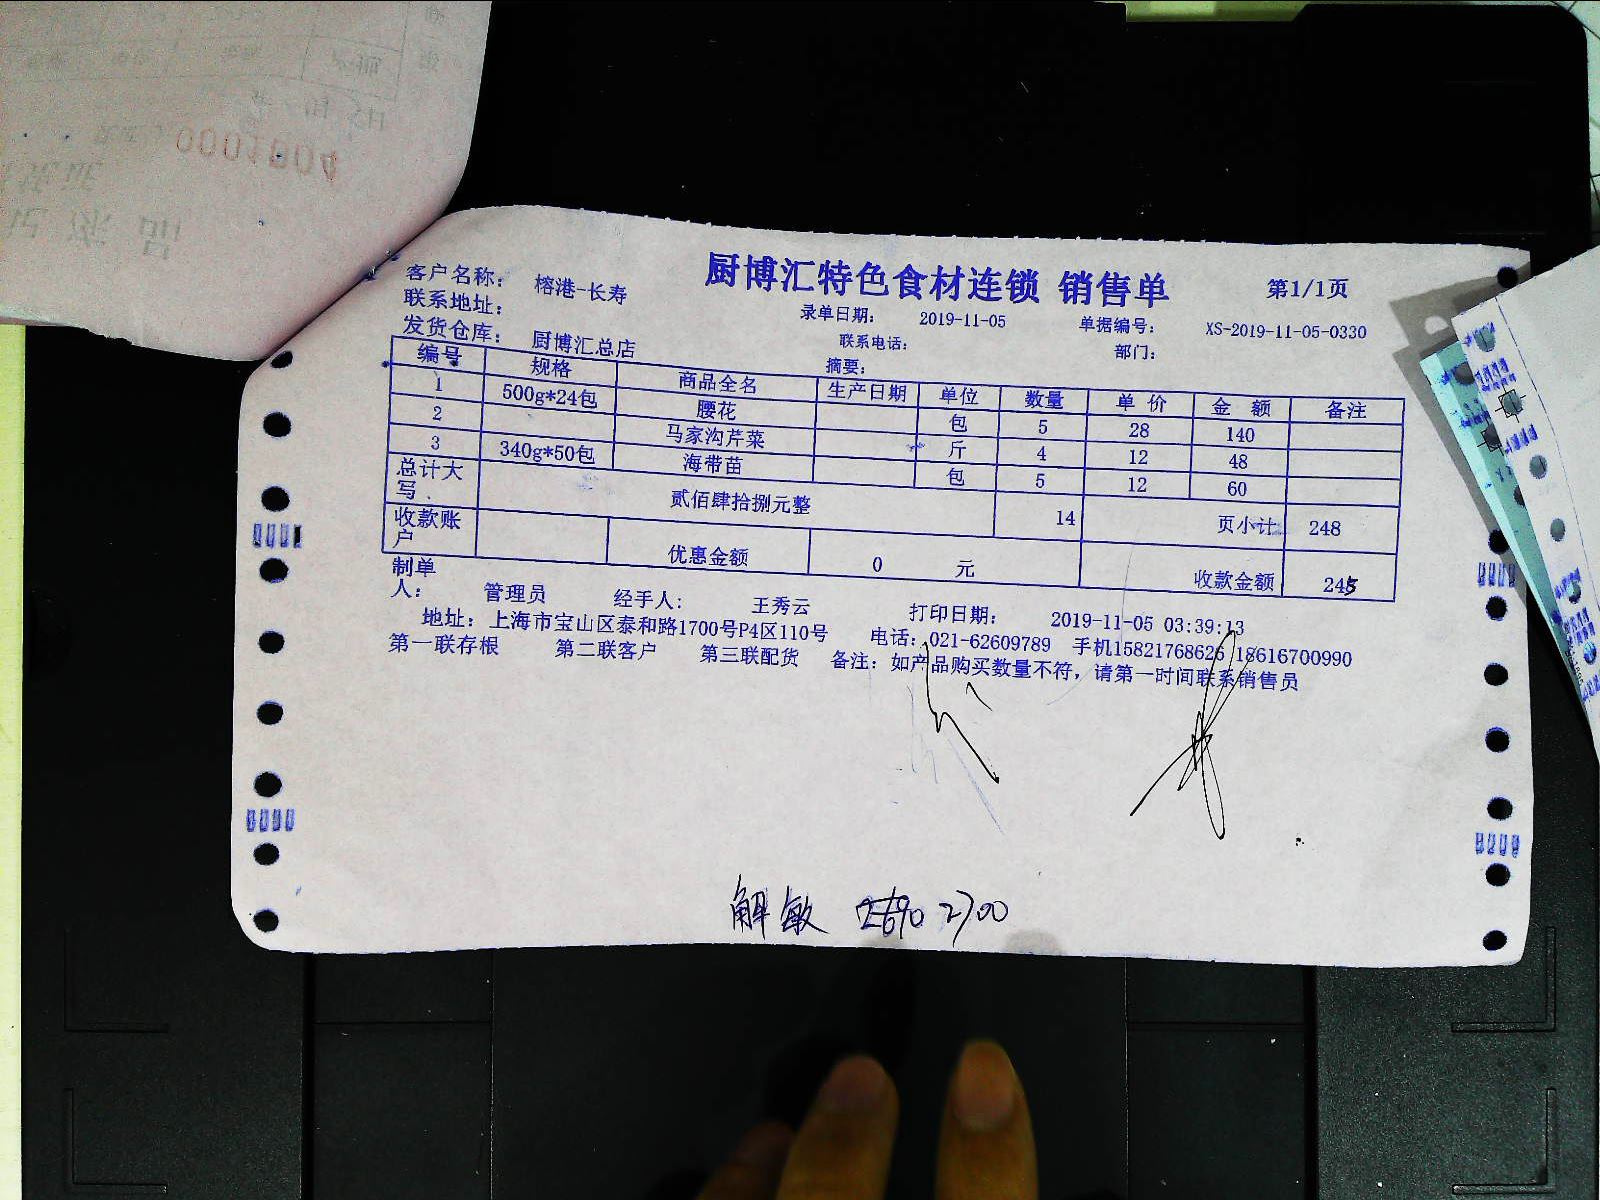 厨博汇特色食材连锁 销售单 第1/1页
客户名称： 榕港-长寿
联系地址： 录单日期： 2019-11-05 单据编号： XS-2019-11-05-0330
发货仓库： 厨博汇总店 联系电话： 部门：
摘要：
编号 规格 商品全名 生产日期 单位 数量 单 价 金 额 备注
1 500g*24包 腰花 包 5 28 140
2 马家沟芹菜 斤 4 12 48
3 340g*50包 海带苗 包 5 12 60
总计大写 贰佰肆拾捌元整 14 页小计 248
收款账户 优惠金额 0 元 收款金额 245
制单人： 管理员 经手人: 王秀云 打印日期： 2019-11-05 03:39:13
地址：上海市宝山区泰和路1700号P4区110号 电话：021-62609789 手机15821768626 18616700990
第一联存根 第二联客户 第三联配货 备注：如产品购买数量不符，请第一时间联系销售员
解敏 2700
0001804